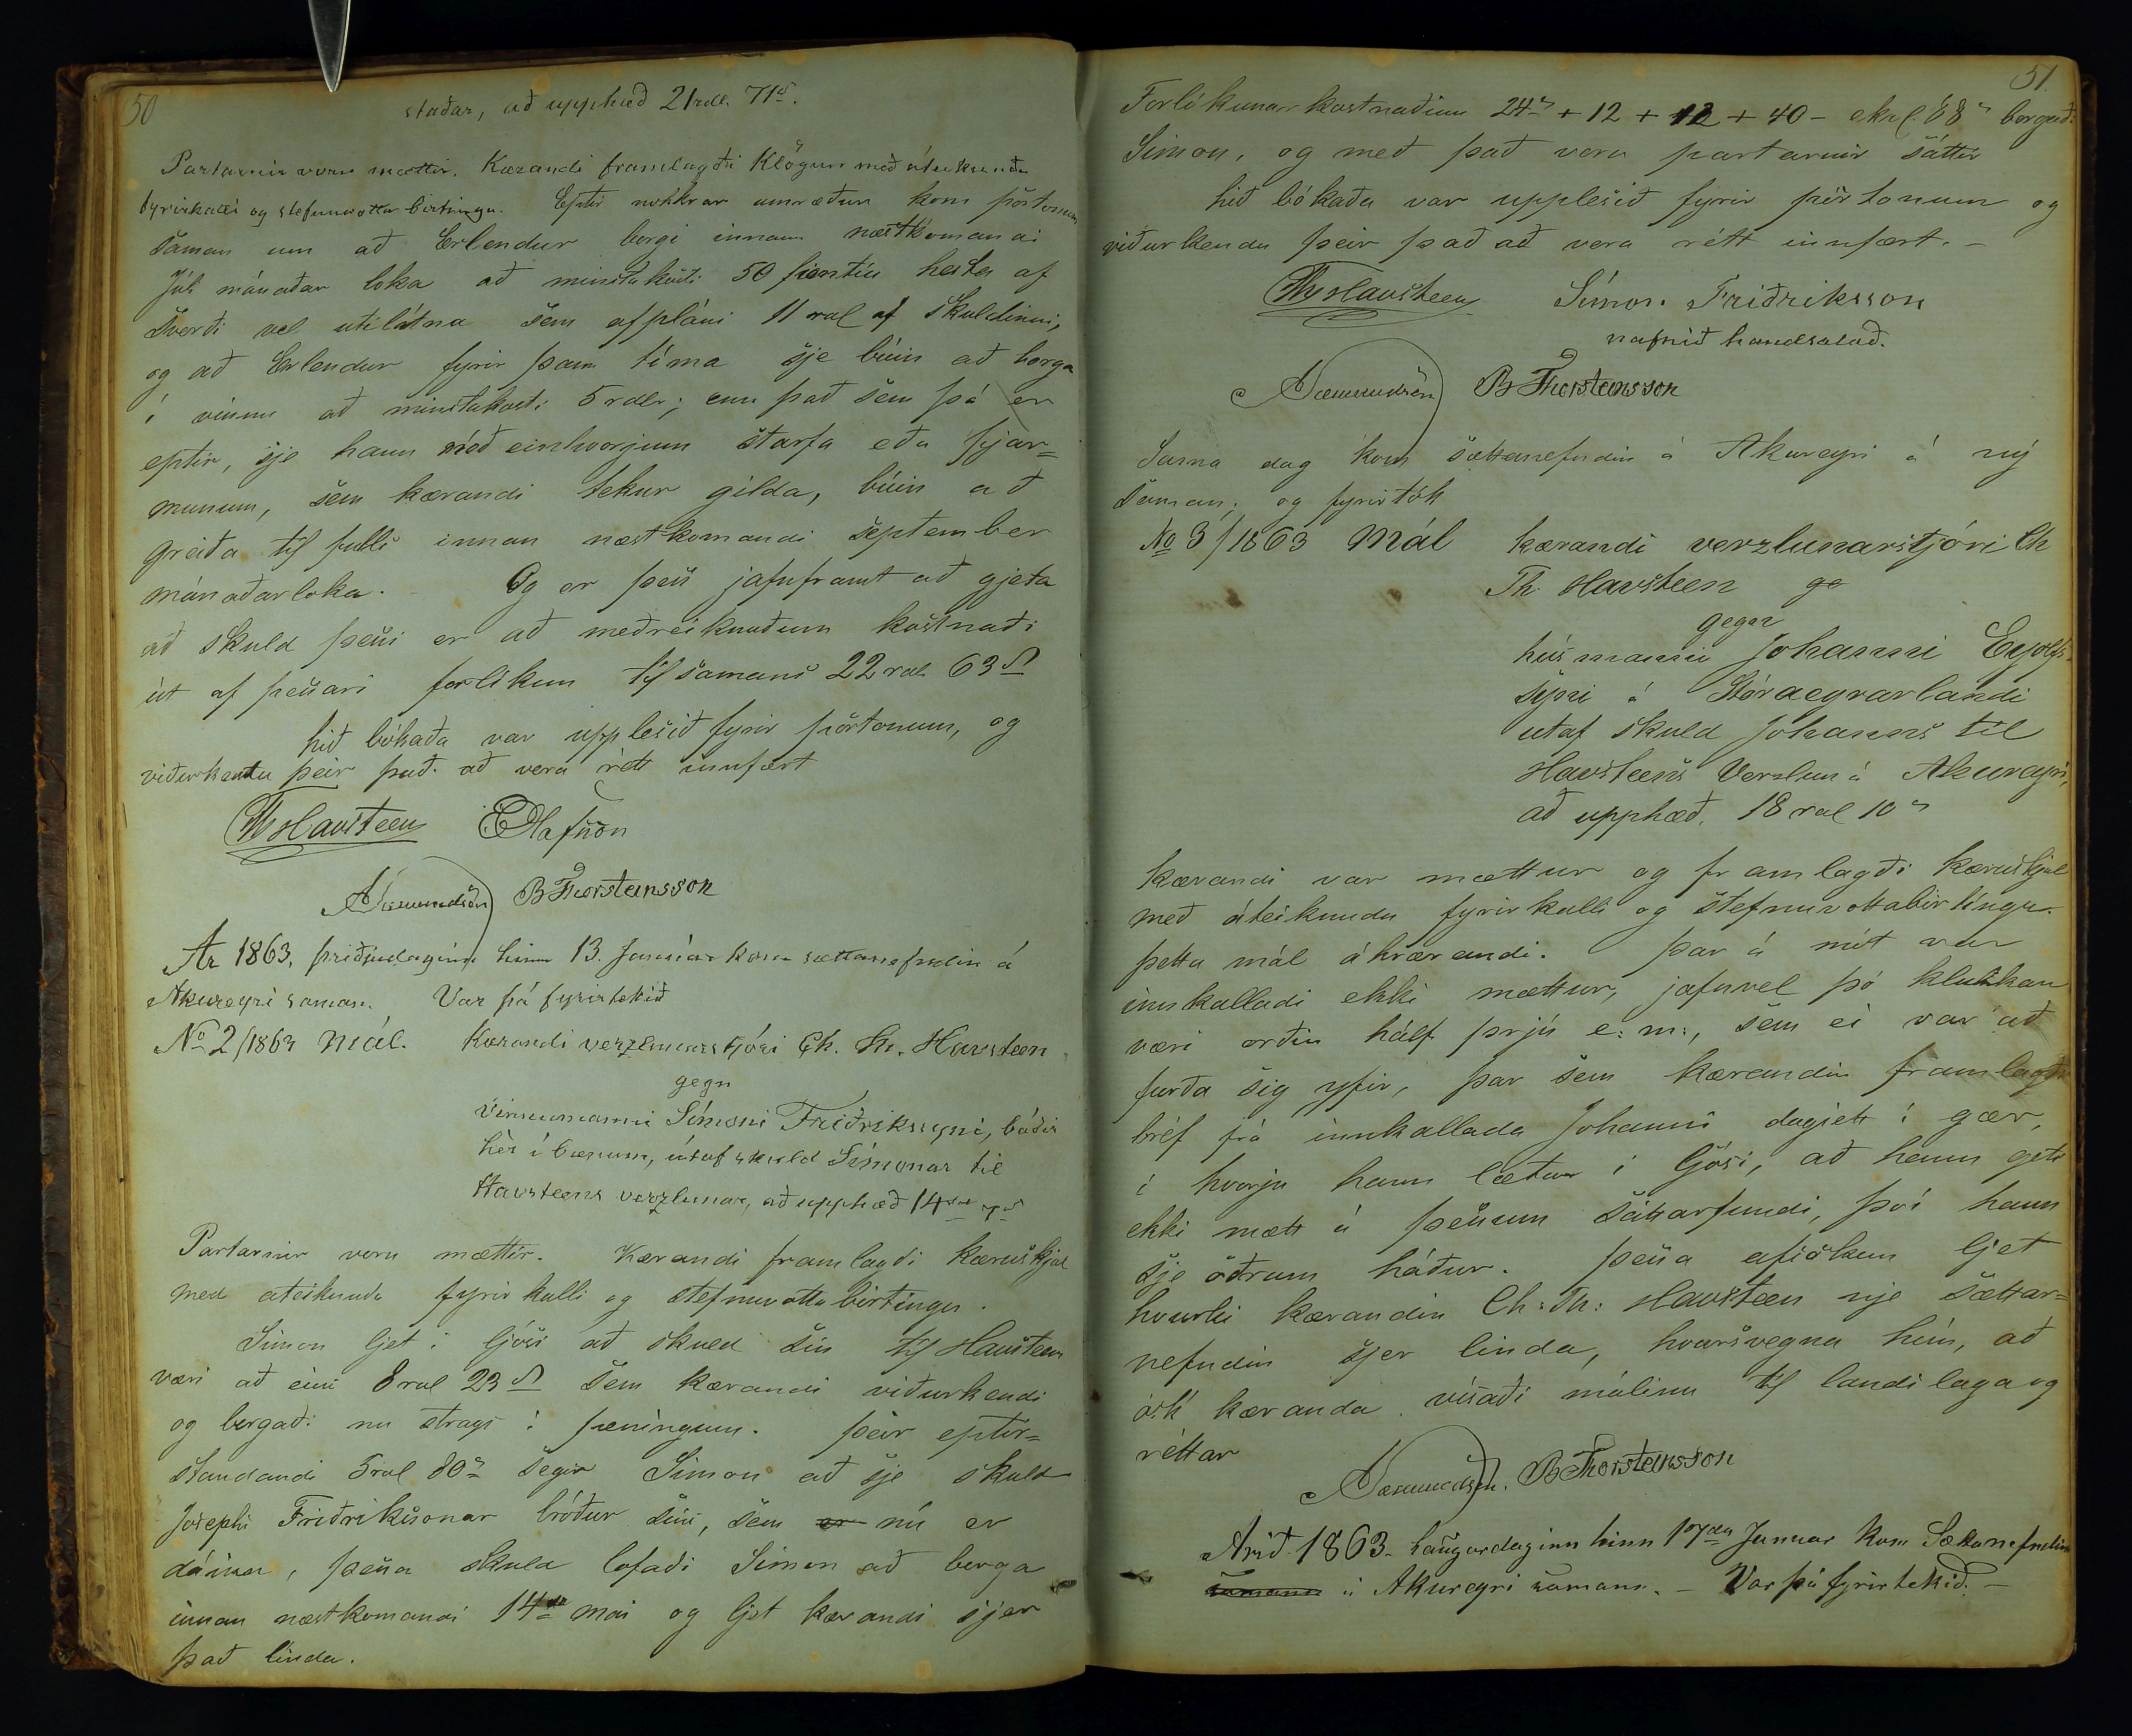 50
staðar, að upphæð 21rdl. 71s.
Partarnir voru mættir. Kærandi framlagði Klögun með áteiknuðu
fyrirkalli og stefnuvotta birtingu. Eptir nokkrar umræður kom pörtonum
saman um að Erlendur borgi innan næstkomandi
Júli mánaðar loka að minstakosti 50 fjentiu hesta af
sverði vel utilátna sem afpláni 11 rdl af skuldinni,
og að Erlendur fyrir þann tíma sje búin að borga
í vinnu að minstakosti 5 rdlr; enn það sem þá er
eptir, sje hann með einhvorjum starfa eða fjár=
munum, sem kærandi tekur gilda, búin að
greiða til fulls innan næstkomandi september
mánaðarloka. Og er þess jafnframt að gjeta
að skuld þessi er að meðreiknuðum kostnaði
út af þessari forlikun til samans 22 rdl 63 s
hið bókaða var upplesið fyrir pörtonum, og
viðurkentu þeir það að vera rétt innfært
Th Havsteen E Olafsson
Asmundsön B Thorsteinsson
Ár 1863, þriðjudaginn hinn 13. Janúar kom sættanefndin á
Akureyri saman. Var þá fyrirtekið
No 2/1863 Mál. Kærandi verzlunarstjóri Ch. Th. Havsteen
gegn
vinnumanni Símoni Friðrikssyni, báðir
hér í bænum, útaf skuld Símonar til
Havsteens verzlunar, að upphæð 14rd 7s
Partarnir voru mættir. Kærandi framlagði kæruskjal
med áteiknuðu fyrirkalli og stefnuvotta birtingu.
Simon ljet í ljósi að skuld sín til Havsteen
væri að eins 8 rdl 23 s sem kærandi viðurkendi
og borgaði nu strags í peningum. Þeir eptir=
standandi 5 rdl 80s segir Simon að sje skuld
Josephs Friðrikssonar bróður síns, sem er nú er
dáinn, þessa skuld lofaði Simon að borga
innan næstkomandi 14da mai og ljet kærandi sjer
það linda.
51.
Forlíkunarkostnaðinn 24s + 12 + 12 + 40 - 88s borgaði
Simon, og með það voru partarnir sáttir
hið bókaða var upplesið fyrir pörtonum og
viðurkendu þeir það að vera rétt innfært. -
Th Havsteen Símon Friðriksson
nafnið handsalað.
Asmundsön B Thorsteinsson
Sama dag kom sættanefndin á Akureyri á ný
saman; og fyrirtók
No 3/1863 Mál kærandi verzlunarstjóri Ch
Th. Havsteen ge
gegn
húsmanni Johanni Eyolfs-
syni á Stóraeyrarlandi
utaf skuld Johanns til
Havsteens Verzlun á Akureyri,
að upphæð 18 rdl 10s
Kærandi var mættur og framlagði kæruskjal
með áteiknuðu fyrirkalli og stefnuvottabirtingu.
þetta mál áhrærandi. Þar á mót var
innkalladi ekki mættur, jafnvel þó klukkan
væri orðin hálf þrjú e: m:, sem ei var að
furða sig yfir, þar sem kærandin framlagði
bréf frá innkallada Johanni dagsett í gær,
í hvorju hann lætur í ljósi, að hann geti
ekki mætt á þessum sáttarfundi, því hann
sje öðrum háður. Þessa afsökun ljet
hvurki kærandin Ch: Th: Havsteen nje sættar=
nefndin sjer linda, hvarsvegna hún, að
ósk kæranda vísaði málinu til landslaga og
réttar
Asmundsön. B Thorsteinsson
Árið 1863. laugardaginn hinn 17da Januar kom Sættanefndin
samann á Akureyri samann. - Var þá fyrirtekið. -